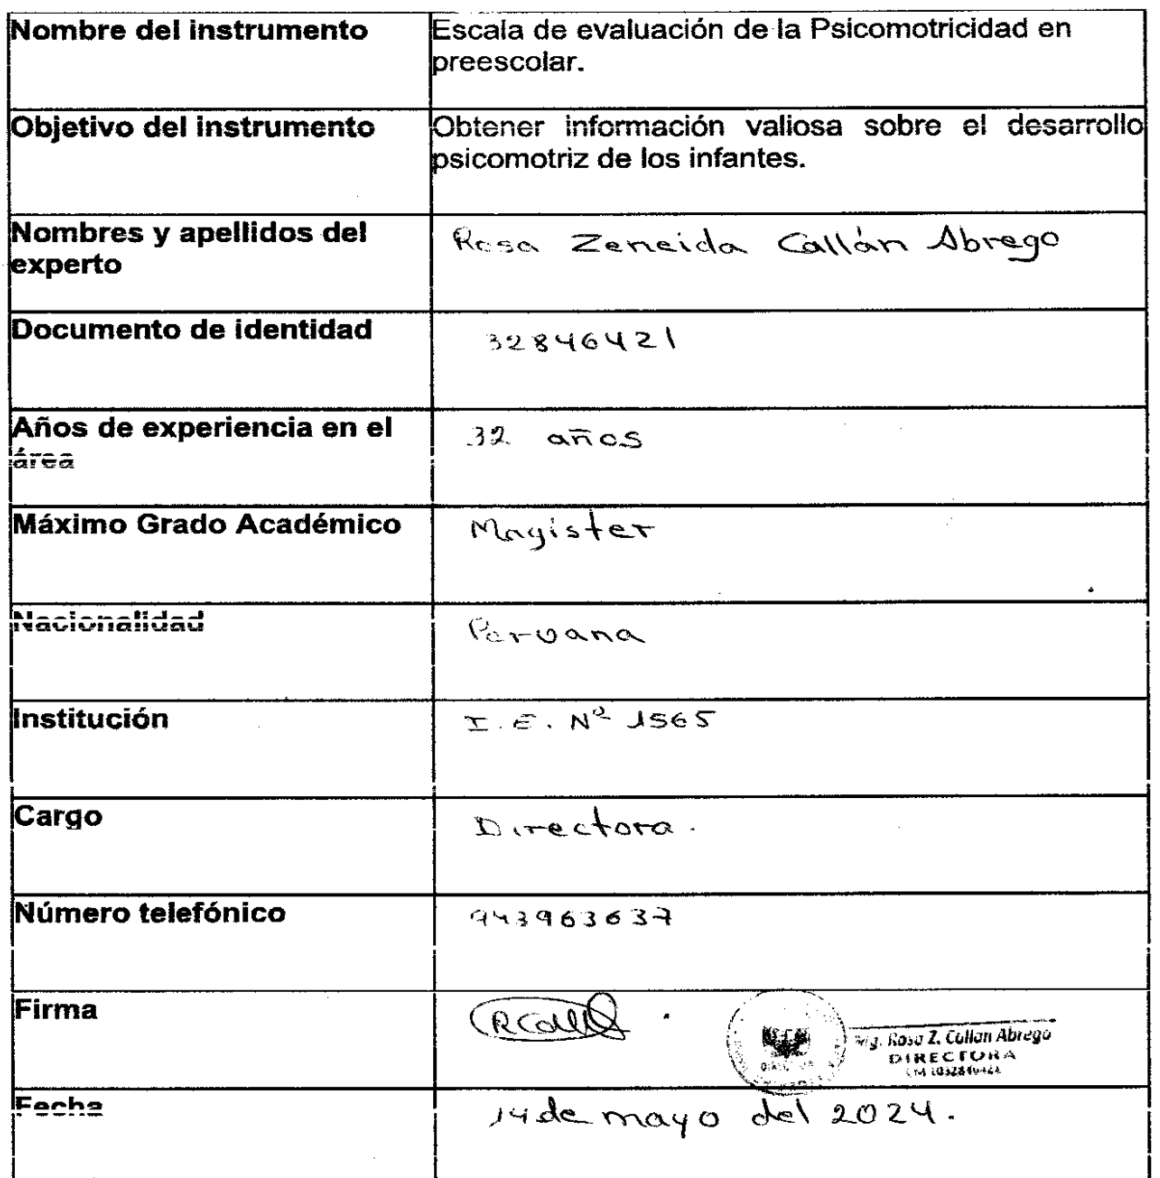 Nombre del instrumento
Escala de evaluación de la Psicomotricidad en
preescolar.
Objetivo del instrumento
Obtener información valiosa sobre el desarrollo
psicomotriz de los infantes.
Nombres y apellidos del
experto
Rosa Zeneida Callán Abrego
Documento de identidad
32846421
Años de experiencia en el
área
32 años
Máximo Grado Académico
Magister
Nacionalidad
Peruana
Institución
I.E. Nº 1565
Cargo
Directora.
Número telefónico
943963637
Firma
RCall
Mg. Rosa Z. Callan Abrego
DIRECTORA
Fecha
14 de mayo del 2024.